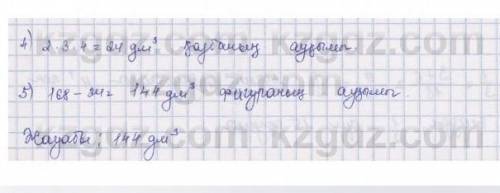 4) 2 · 3 · 4 = 24 дм³ қорапаның аумағы.
5) 168 - 24 = 144 дм³ фигураның аумағы.
Жауабы: 144 дм³